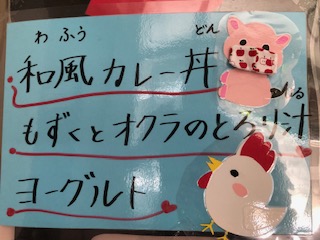 わ ふう どん
和風カレー丼
しる
もずくとオクラのとろり汁
ヨーグルト